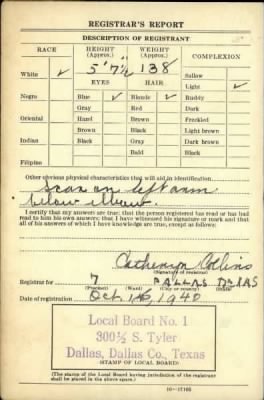 REGISTRAR'S REPORT
DESCRIPTION OF REGISTRANT
RACE HEIGHT (Approx.) WEIGHT (Approx.) COMPLEXION
5' 7½" 138
White ✓ Sallow
EYES HAIR Light ✓
Negro Blue ✓ Blonde ✓ Ruddy
Gray Red Dark
Oriental Hazel Brown Freckled
Brown Black Light brown
Indian Black Gray Dark brown
Bald Black
Filipino
Other obvious physical characteristics that will aid in identification
Scar on left arm
below elbow.
I certify that my answers are true; that the person registered has read or has had
read to him his own answers; that I have witnessed his signature or mark and that
all of his answers of which I have knowledge are true, except as follows:
Catherine Collins
(Signature of registrar)
Registrar for 7 DALLAS TEXAS
(Precinct) (Ward) (City or county) (State)
Date of registration Oct. 16, 1940
Local Board No. 1
300½ S. Tyler
Dallas, Dallas Co., Texas
(STAMP OF LOCAL BOARD)
(The stamp of the Local Board having jurisdiction of the registrant
shall be placed in the above space.)
16—17105